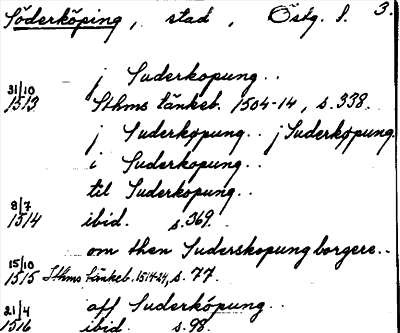 Söderköping, stad, Östg. l. 3.
j Suderkopung..
31/10 1513 Sthms tänkeb. 1504-14, s. 338.
j Suderkopung.. j Suderkopung
i Suderkopung..
til Suderkopung..
8/7 1514 ibid. s. 369.
om then Suderskopung borgere..
15/10 1515 Sthms tänkeb. 1514-24, s. 77.
aff Suderkopung..
21/4 1516 ibid. s. 98.